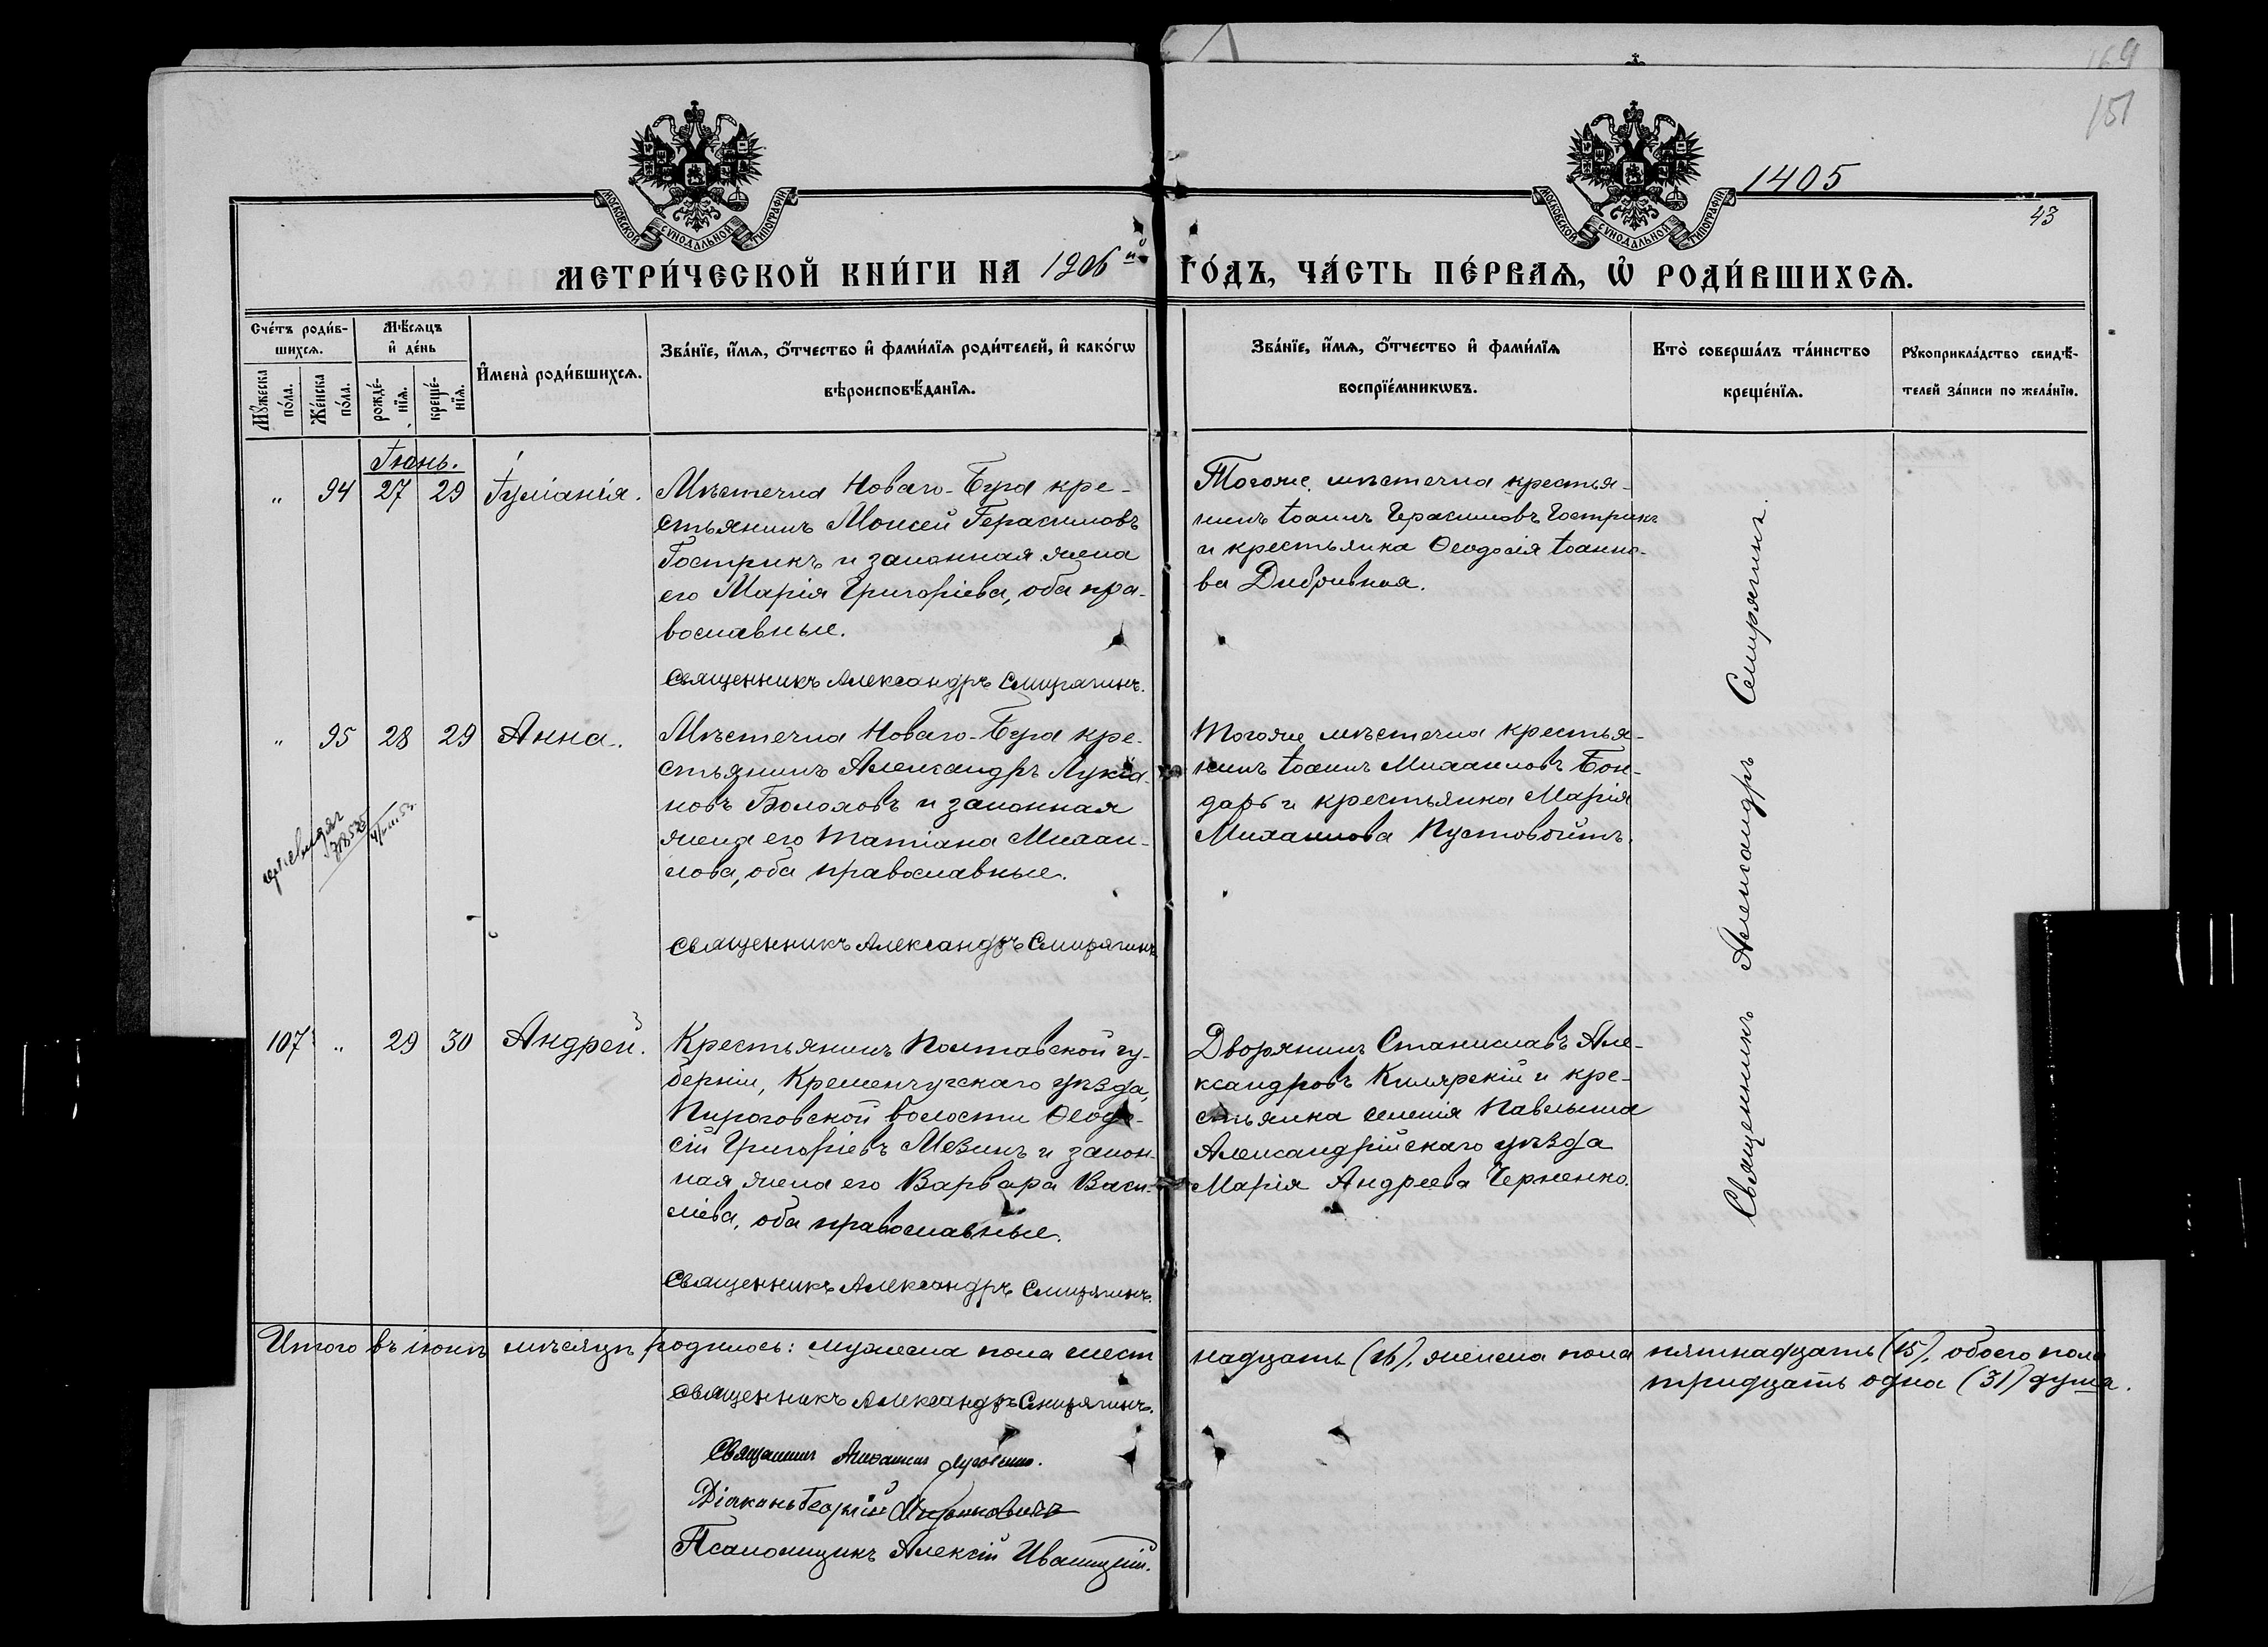 169
151
1405
43
МОСКОВСКОЙ СѴНОДАЛЬНОЙ ТИПОГРАФІИ
МОСКОВСКОЙ СѴНОДАЛЬНОЙ ТИПОГРАФІИ
МЕТРИ́ЧЕСКОЙ КНИ́ГИ НА 1906й ГО́ДЪ, ЧА́СТЬ ПЕ́РВАѦ, Ѽ РОДИ́ВШИХСѦ.
Сче́тъ роди́в-
шихсѧ.
Мꙋ́жеска по́ла.
Же́нска по́ла.
Мѣ́сѧцъ
и҆ де́нь
рожде́-
нїѧ.
креще́-
нїѧ.
И҆мена̀ роди́вшихсѧ.
Зва́нїе, и҆́мѧ, ѻ҆́тчество и҆ фами́лїѧ роди́телей, и҆ како́гѡ
вѣроисповѣ́данїѧ.
Зва́нїе, и҆́мѧ, ѻ҆́тчество и҆ фами́лїѧ
воспрїе́мникѡвъ.
Кто̀ соверша́лъ та́инство
креще́нїѧ.
Рꙋкоприкла́дство свидѣ́-
телей за́писи по жела́нїю.
Іюнь.
„ 94 27 29 Іуліанія.
Мѣстечка Новаго-Буга кре-
стьянинъ Моисей Герасимовъ
Гострикъ и законная жена
его Марія Григоріева, оба пра-
вославные.
Священникъ Александръ Смирягинъ.
Тогоже мѣстечка крестья-
нинъ Іоаннъ Герасимовъ Гострикъ
и крестьянка Ѳеодосія Іоанно-
ва Дибривная.
„ 95 28 29 Анна.
Мѣстечка Новаго-Буга кре-
стьянинъ Александръ Лукіа-
новъ Болоховъ и законная
жена его Татіана Михаи-
лова, оба православные.
Священникъ Александръ Смирягинъ
Тогоже мѣстечка крестья-
нинъ Іоаннъ Михаиловъ Бон-
дарь и крестьянка Марія
Михаилова Пустовойтъ.
107 „ 29 30 Андрей.
Крестьянинъ Полтавской гу-
берніи, Кременчугскаго уѣзда,
Пироговской волости Ѳеодо-
сій Григоріевъ Мезинъ и закон-
ная жена его Варвара Васи-
ліева, оба православные.
Священникъ Александръ Смирягинъ.
Дворянинъ Станиславъ Але-
ксандровъ Килярскій и кре-
стьянка селенія Павлыша
Александрійскаго уѣзда
Марія Андреева Черненко.
Священникъ Александръ Смирягинъ
Итого въ іюнѣ мѣсяцѣ родилось: мужеска пола шест
надцать (16), женска пола пятнадцать (15), обоего пола
тридцать одна (31) душа.
Священникъ Александръ Смирягинъ.
Священникъ
Діаконъ Георгій
Псаломщикъ Алексій Иваницкій.